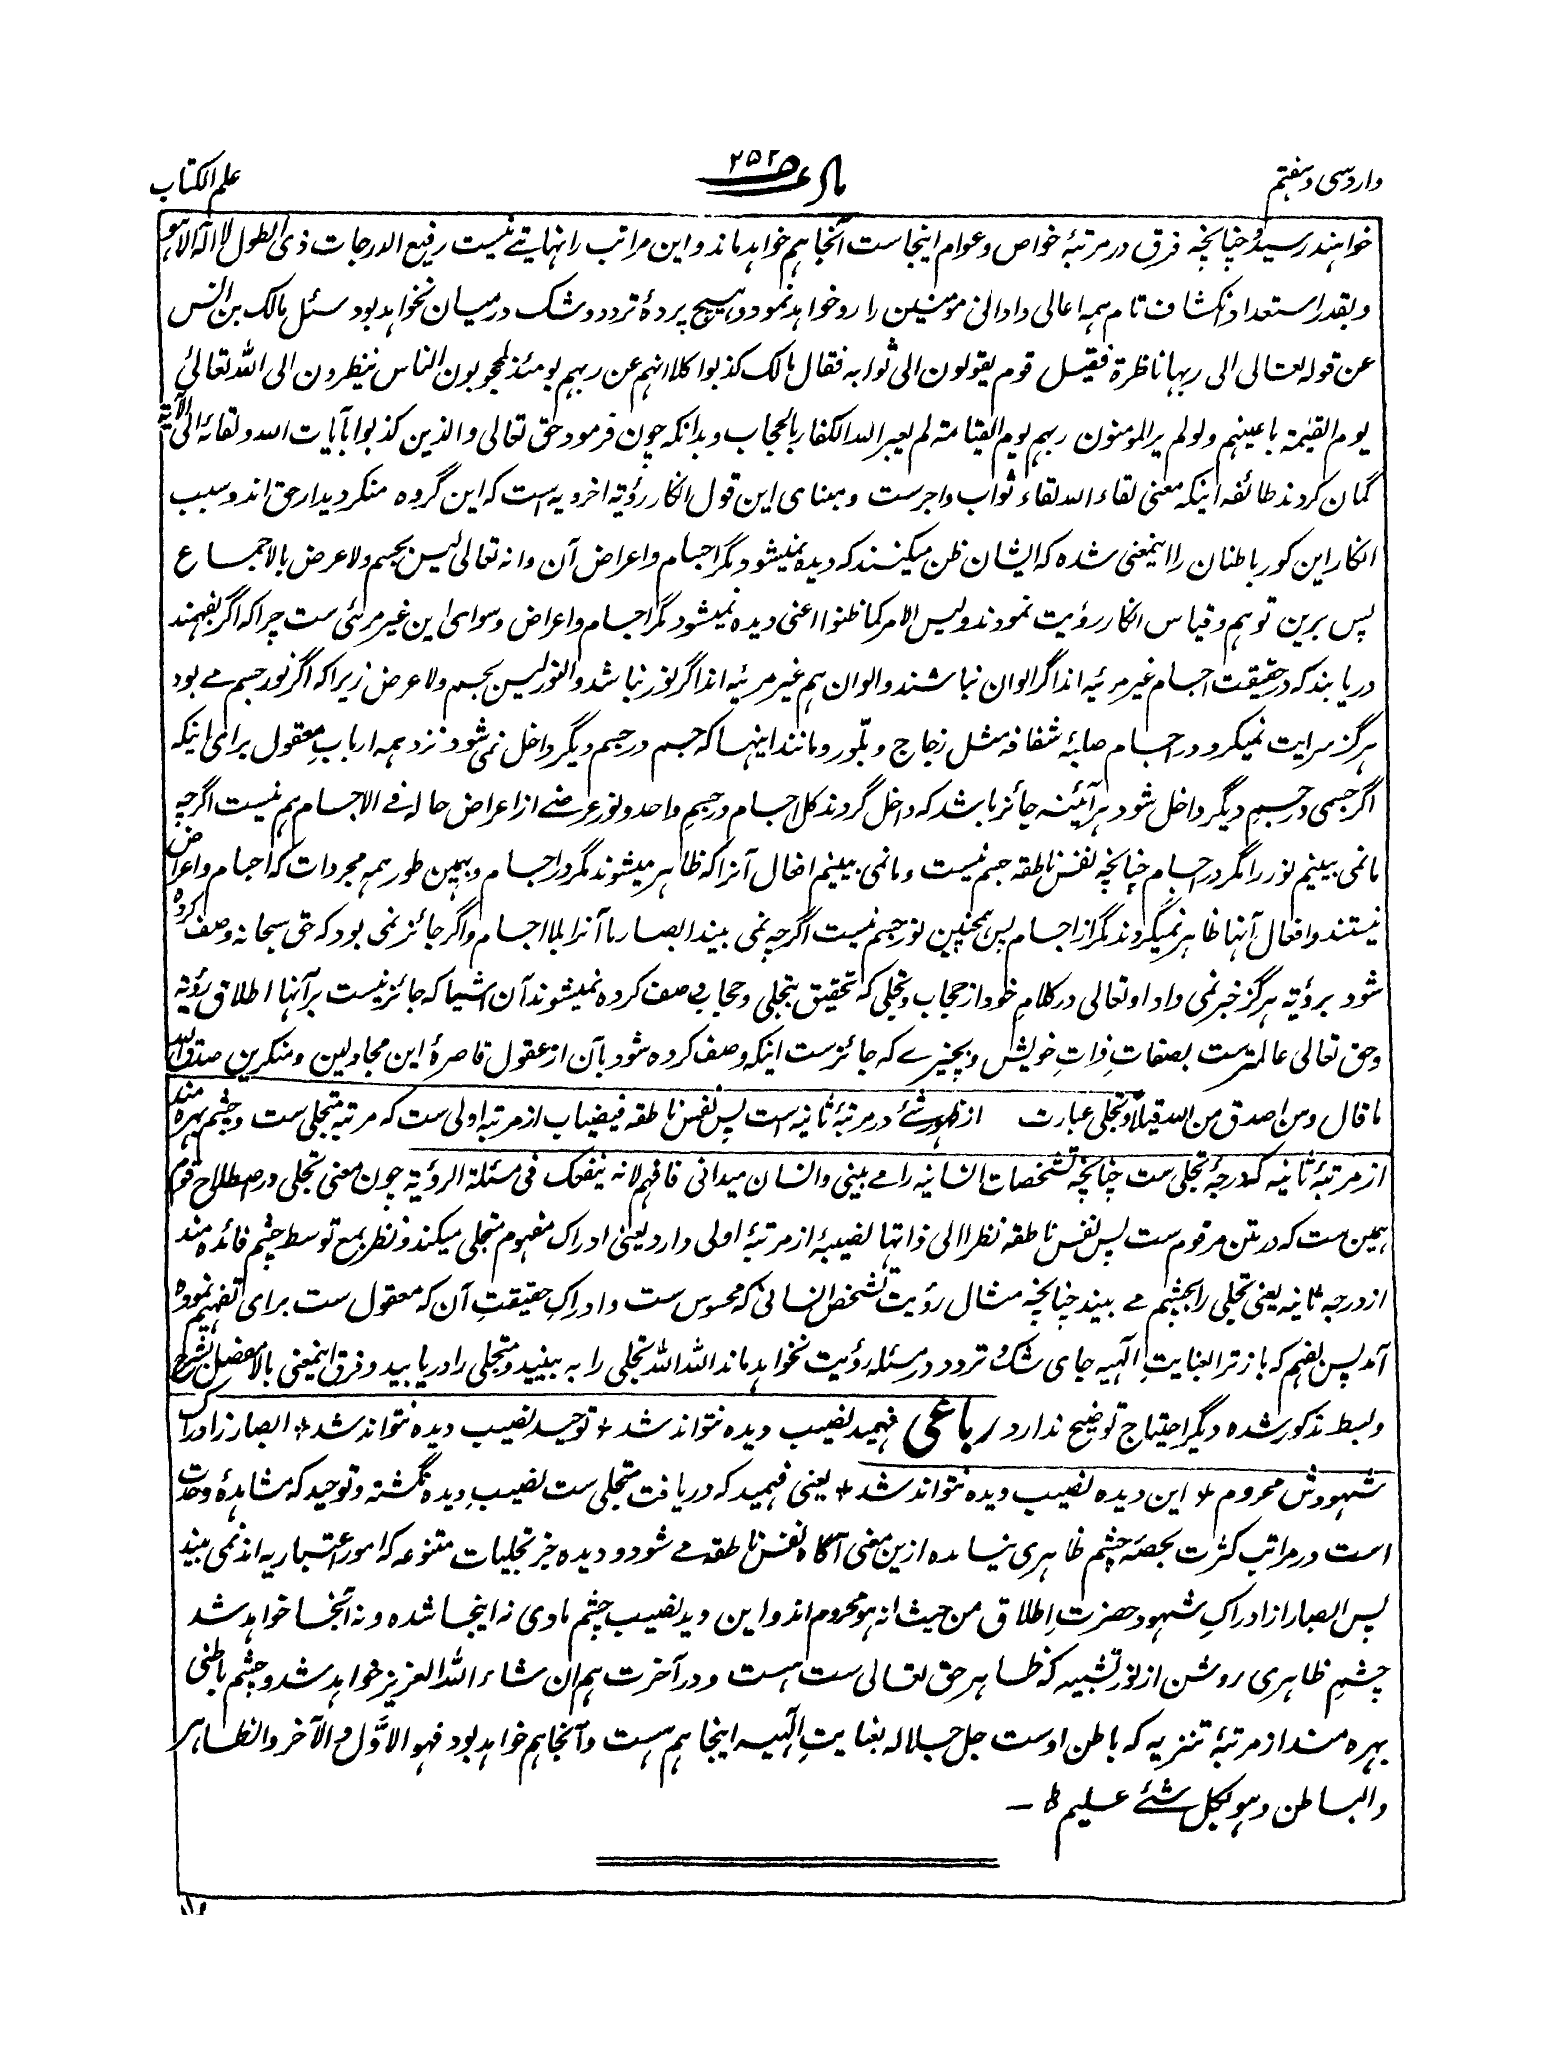 وارد سی و هفتم
۲۵۲
علم الکتاب
خواهند رسید و چنانچه فرق در مرتبهٔ خواص و عوام اینجاست آنجا هم خواهد ماند و این مراتب را نهایتے نیست رفیع الدرجات ذی الطول لا اله الا هو
و بقدر استعداد انکشاف تام همه اعالی و ادانی مومنین را رو خواهد نمود و هیچ پردهٔ تردد و شک درمیان نخواهد بود سئل مالک بن انس
عن قوله تعالی الی ربها ناظرة فقیل قوم یقولون الی ثوابه فقال مالک کذبوا کلا انهم عن ربهم یومئذ لمحجوبون الناس ینظرون الی الله تعالیٰ
یوم القیٰمة باعینهم و لو لم یر المومنون ربهم یوم القیامة لم یعیر الله الکفار بالحجاب و بدانکه چون فرمود حق تعالی و الذین کذبوا بآیات الله و لقائه الی الآیة
گمان کردند طائفه اینکه معنی لقاء الله لقاء ثواب و اجرست و مبنای این قول انکار رؤیة اخرویه است که این گروه منکر دیدار حق اند و سبب
انکار این کور باطنان را اینمعنی شده که ایشان ظن میکنند که دیده نمیشود مگر اجسام و اعراض آن و انه تعالی لیس بجسم و لا عرض بالاجماع
پس برین توهم و قیاس انکار رؤیت نمودند و لیس الامر کما ظنوا اعنی دیده نمیشود مگر اجسام و اعراض و سوای این غیر مرئی ست چرا که اگر بفهمند
دریابند که در حقیقت اجسام غیر مرئیه اند اگر الوان نباشند و الوان هم غیر مرئیه اند اگر نور نباشد و النور لیس بجسم و لا عرض زیرا که اگر نور جسم مے بود
هرگز سرایت نمیکرد در اجسام صلبهٔ شفافه مثل زجاج و بلّور و مانند اینها که جسم در جسم دیگر داخل نمی شود نزد همه ارباب معقول برای اینکه
اگر جسمی در جسم دیگر داخل شود هر آئینه جائز باشد که داخل گردند کل اجسام در جسم واحد و نور عرضے از اعراض حاله فی الاجسام هم نیست اگرچه
ما نمی بینیم نور را مگر در اجسام چنانچه نفس ناطقه جسم نیست و ما نمی بینیم افعال آنرا که ظاهر میشوند مگر در اجسام و بهمین طور همه مجردات که اجسام و اعراض
نیستند و افعال آنها ظاهر نمیگردند مگر از اجسام پس همچنین نور جسم نیست اگرچه نمی بیند ابصار ما آنرا بلا اجسام و اگر جائز نمی بود که حق سبحانه وصف کرده
شود برؤیة هرگز خبر نمی داد او تعالی در کلام خود از حجاب و تجلی که تحقیق بتجلی و حجاب وصف کرده نمیشوند آن اشیا که جائز نیست بر آنها اطلاق رؤیة
و حق تعالی عالمترست بصفات ذات خویش و بچیزے که جائزست اینکه وصف کرده شود بآن از عقول قاصرهٔ این مجادلین و منکرین صدق الله
ما قال و من اصدق من الله قیلاً و تجلی عبارت از ظهور شئے در مرتبهٔ ثانیه است پس نفس ناطقه فیضیاب از مرتبه اولی ست که مرتبه متجلی ست و چشم بهره مند
از مرتبهٔ ثانیه که درجهٔ تجلی ست چنانچه تشخصات انسانیه را مے بینی و انسان میدانی فافهم لانه ینفعک فی مسئلة الرؤیة چون معنی تجلی در اصطلاح قوم
همین ست که در متن مرقوم ست پس نفس ناطقه نظرا الی ذاتها نصیبهٔ از مرتبهٔ اولی دارد یعنی ادراک مفهوم متجلی میکند و نظر بمع توسط چشم فائده مند
از درجه ثانیه یعنی تجلی را بچشم مے بیند چنانچه مثال رؤیت تشخص انسانی که محسوس ست و ادراک حقیقت آن که معقول ست برای تفهیم نموده
آمد پس بفهم که باز ترا بعنایت الٰهیه جای شک و تردد در مسئله رؤیت نخواهد ماند الله الله تجلی را به بینید و متجلی را دریابید و فرق اینمعنی بالا مفصل بشرح
و بسط مذکور شده دیگر احتیاج توضیح ندارد رباعی فهمید نصیب دیده نتواند شد + توحید نصیب دیده نتواند شد + ابصار ز ادراک
شهودش محروم + این دیده نصیب دیده نتواند شد + یعنی فهمید که دریافت متجلی ست نصیب دیده نگشته و توحید که مشاهدهٔ وحدت
است در مراتب کثرت بحصهٔ چشم ظاهری نیامده ازین معنی آگاه نفس ناطقه مے شود و دیده جز تجلیات متنوعه که امور اعتباریه اند نمی بیند
پس ابصار از ادراک شهود حضرت اطلاق من حیث انه هو محروم اند و این دید نصیب چشم مادی نه اینجا شده و نه آنجا خواهد شد
چشم ظاهری روشن از نور تشبیه که ظاهر حق تعالی ست هست و در آخرت هم ان شاء الله العزیز خواهد شد و چشم باطنی
بهره مند از مرتبهٔ تنزیه که باطن اوست جل جلاله بعنایت الٰهیه اینجا هم هست و آنجا هم خواهد بود فهو الاوّل و الآخر و الظاهر
و الباطن و هو بکل شئے علیم ط –